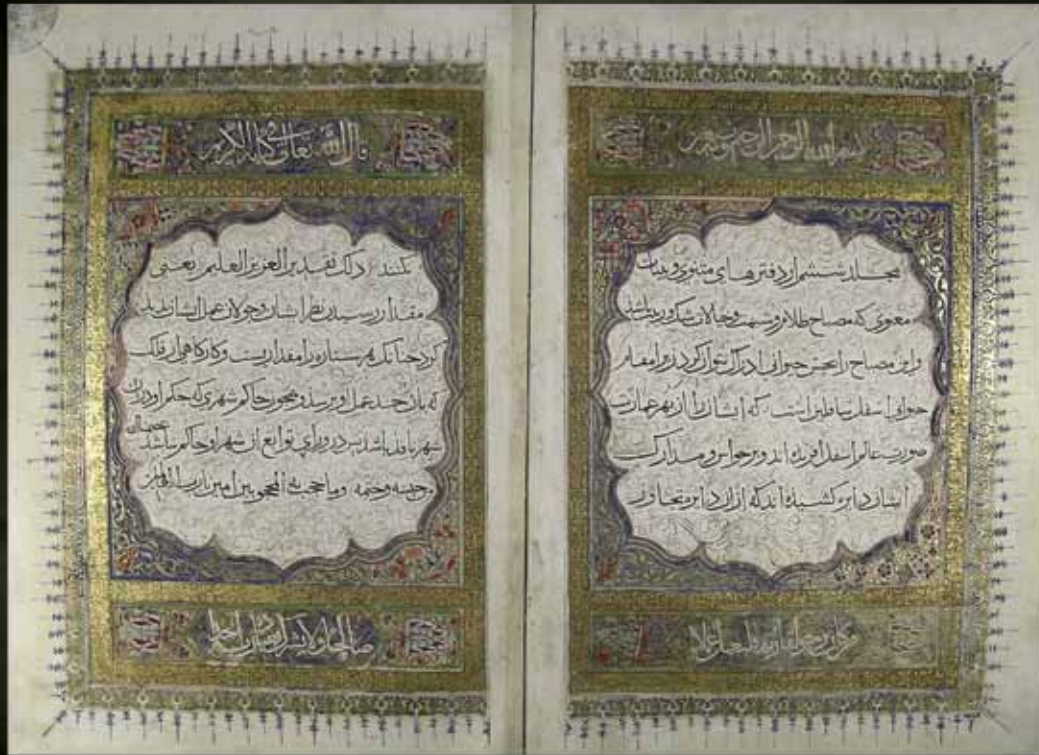 بسم الله الرحمن الرحیم وبه
مجلد ششم از دفترهای مثنوی و بینات
معنوی که مصباح ظلام و شبهت و خیالات شک و ریبت باشد
و این مصباح را بحس حیوانی ادراک نتوان کرد زیرا مقام
حیوانی اسفل سافلین است که ایشان را از بهر عمارت
صورت عالم اسفل آفریده اند و بر حواس و مدارک
ایشان دایره کشیده اند که از آن دایره تجاوز
يرجوا لقاء ربه فليعمل عملا
قال الله تعالی فی کتابه الکریم
نکنند ذلك تقدير العزيز العليم یعنی
مقدار رسیدن نظر ایشان و جولان عمل ایشان پدید
کرد چنانک هر ستاره را مقداریست و کارگاهی از فلک
که تا آن حد عمل او برسد و همچون حاکم شهری که حکم او در آن
شهر نافذ باشد در ورای توابع آن شهر او حاکم نباشد
حبسه وختمه وما حجب به المحجوبين امين يا رب العالمين
صالحا ولا يشرك بعبادة ربه احدا